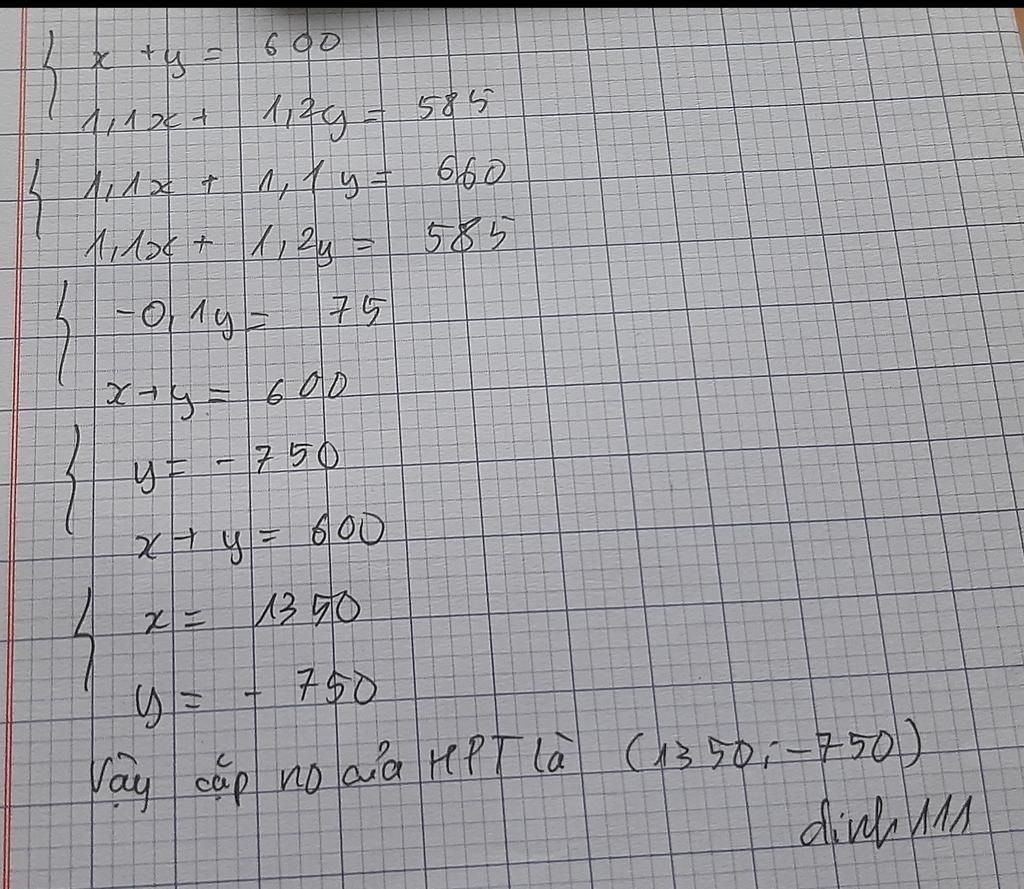 x + y = 600
1,1x + 1,2y = 585
1,1x + 1,1y = 660
1,1x + 1,2y = 585
-0,1y = 75
x + y = 600
y = -750
x + y = 600
x = 1350
y = -750
Vậy cặp no của HPT là (1350;-750)
dinh111